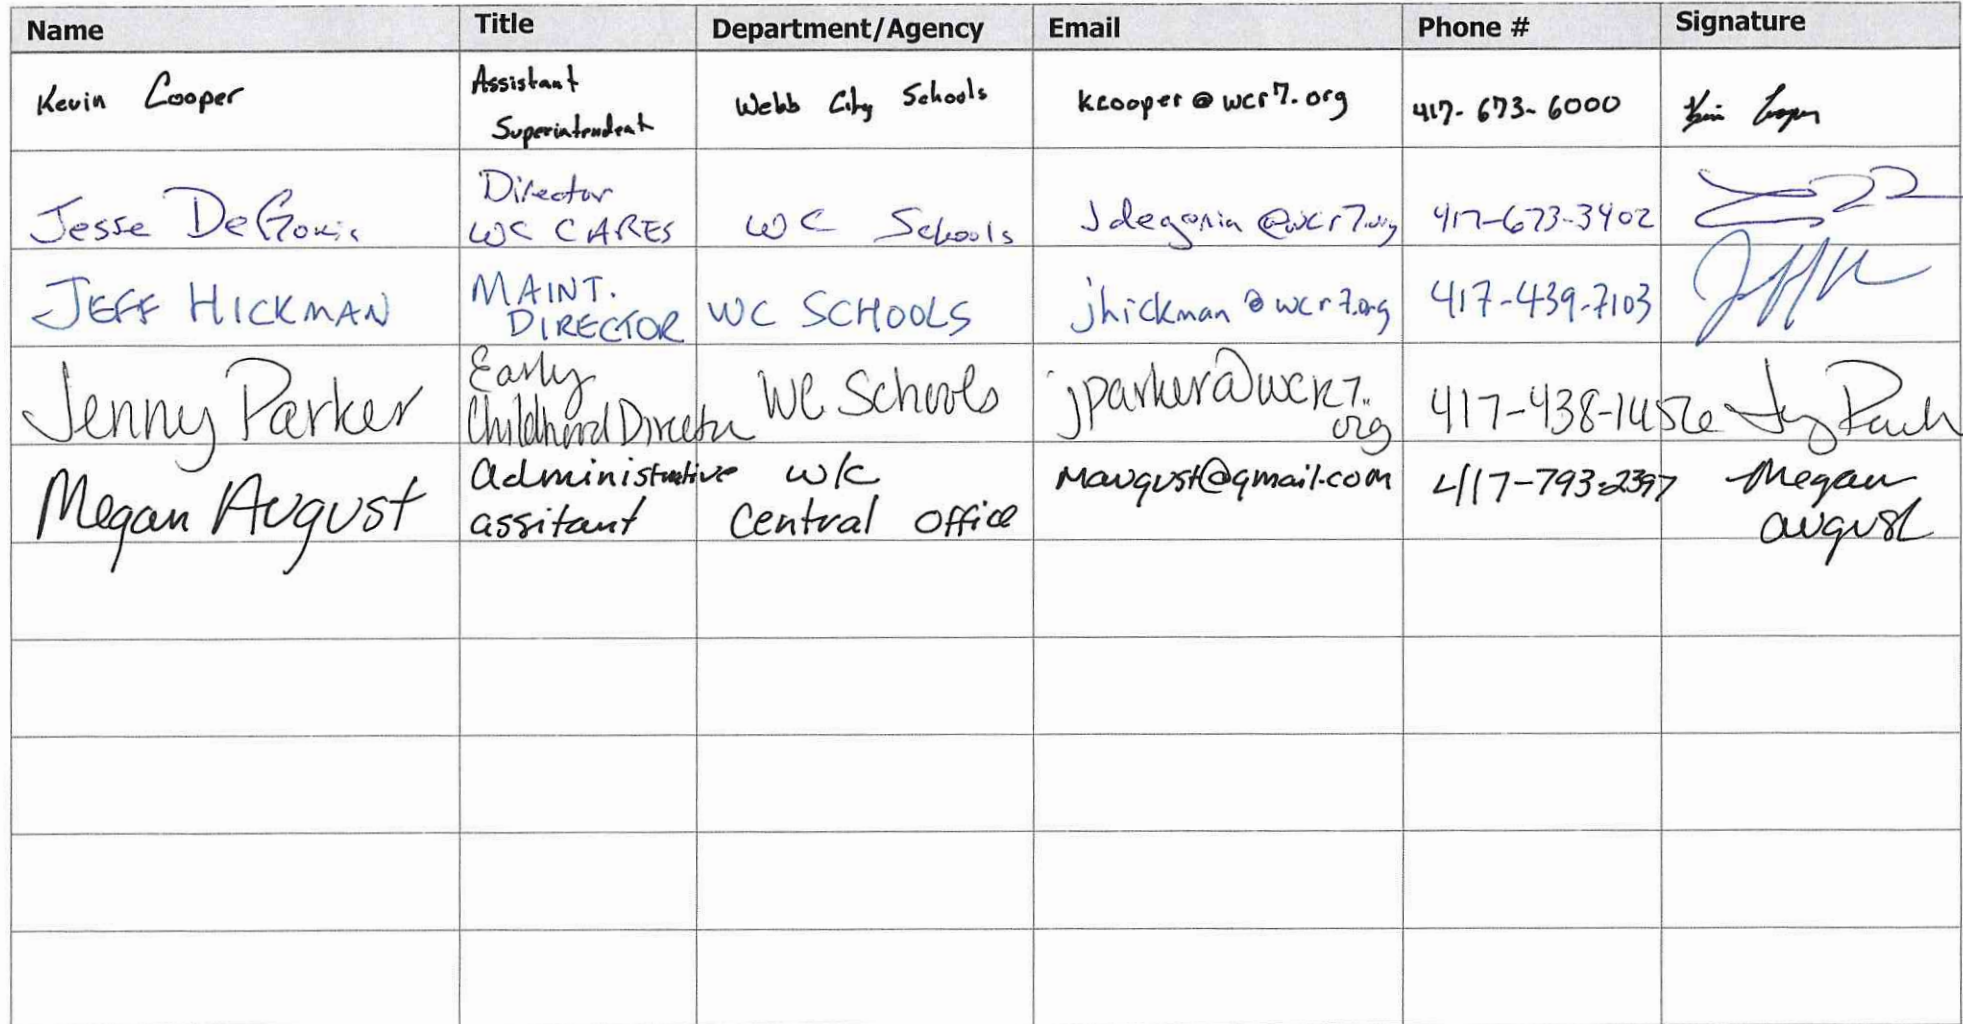 Name Title Department/Agency Email Phone # Signature
Kevin Cooper Assistant Superintendent Webb City Schools kcooper@wcr7.org 417-673-6000 Kevin Cooper
Jesse DeGonia Director WC CARES WC Schools jdegonia@wcr7.org 417-673-3402
JEFF HICKMAN MAINT. DIRECTOR WC SCHOOLS jhickman@wcr7.org 417-439-7103
Jenny Parker Early Childhood Director WC Schools jparker@wcr7.org 417-438-1456
Megan August administrative assitant WC Central office maugust@gmail.com 417-793-2397 Megan august